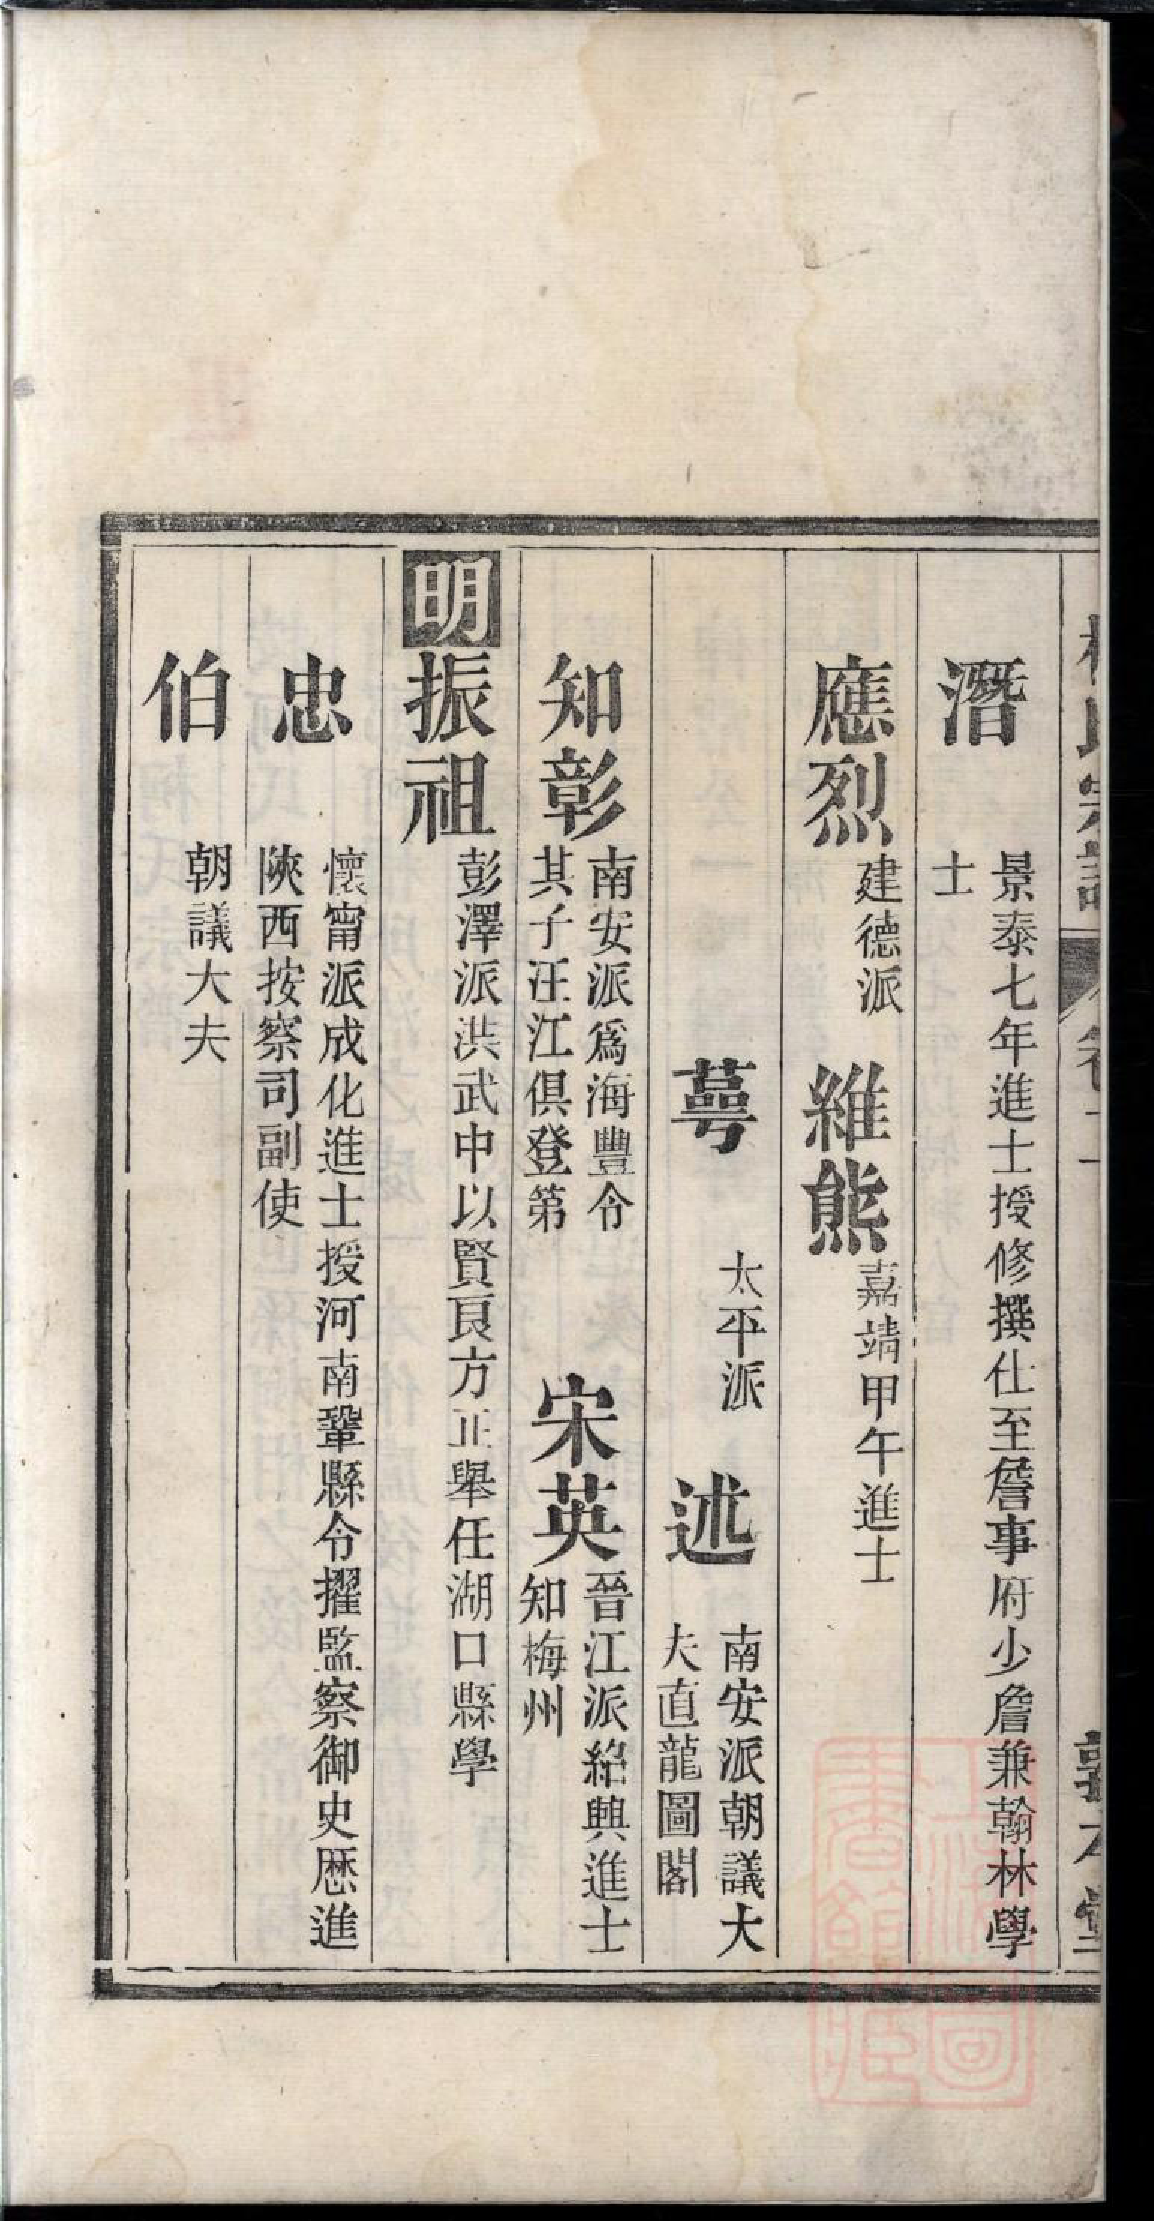 柯氏宗譜
敦本堂
潛
景泰七年進士授修撰仕至詹事府少詹兼翰林學
士
應烈
建德派
維熊
嘉靖甲午進士
蕚
太平派
述
南安派朝議大
夫直龍圖閣
知彰
南安派爲海豐令
其子汪江俱登第
宋英
晉江派紹興進士
知梅州
明
振祖
彭澤派洪武中以賢良方正舉任湖口縣學
忠
懷甯派成化進士授河南鞏縣令擢監察御史歷進
陝西按察司副使
伯
朝議大夫
上海圖書館藏